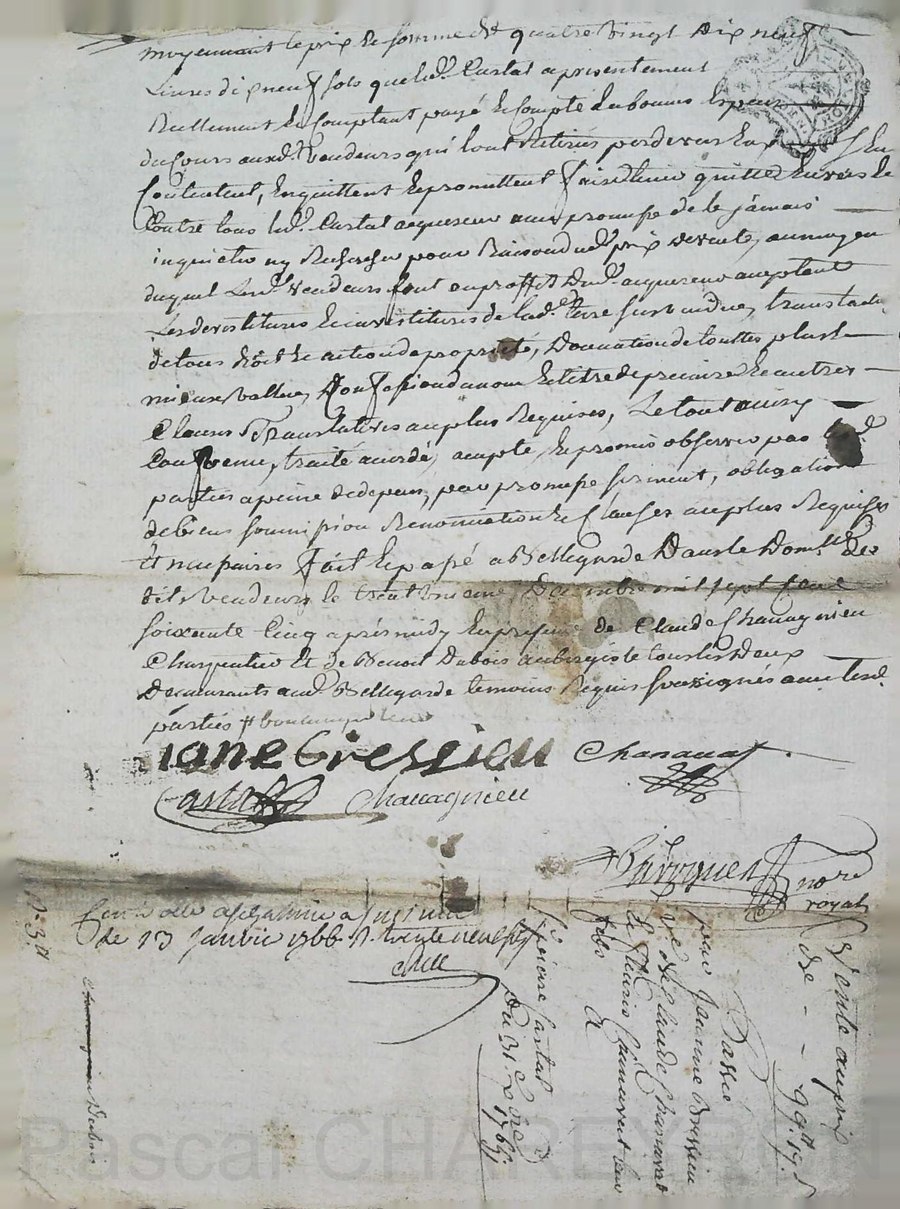 moyennant le prix et somme de quatre vingt dix neuf
Livres dixneuf sols que led. Castat a presentement
Reellement et Comptant payé et Compté en bonnes Especes
du Cours auxd. vendeurs qui l'ont Retirés pardevers Eux, s'en
Contentent, En quittent et promettent faire tenir quitte Envers et
Contre tous led. Castat acquereur avec promesse de le jamais
inquieter ny Rechercher pour Raison dud. prix de vente, au moyen
duquel Lesd. vendeurs font au proffit dud. acquereur acceptant
Les devestitures et investitures de lad. terre sus vendue, translation
de tous droit et action de proprieté, Donnation de touttes plus et
mieux vallue, Confession du nom et titre de precaire et autres
Clauses Translatives au plus Requises, Le tout ainsy
Convenu, traité accordé, accepté, et promis observer par lesd.
parties a peine de depens, par promesse serment, obligation
de biens soumission Renonciation et Clauses au plus Requises
Et necessaires fait et passé a Bellegarde Dans le Dom.lle Des
vendeurs le trente unieme Decembre mil sept Cent
soixante Cinq après midy En presence de Claude Chavagnieu
Charpentier et de Benoit Dubois aubergiste tous les deux
Demeurants aud. Bellegarde temoins Requis soussignés avec lesd.
parties
iane Bressieu Chanavat
Castat Chavagnieu
no.re
royal
Controllé a
le 13 Janvier 1766 R. trente neuf
Vente au prix
de - - 99.tt 19.s
Passée
par Jeanne Bressieu
ve. de Claude Chanavat
et fleurie Chanavat
a
Castat
Du 31. 1765
Dubois
Pascal CHAREYRON